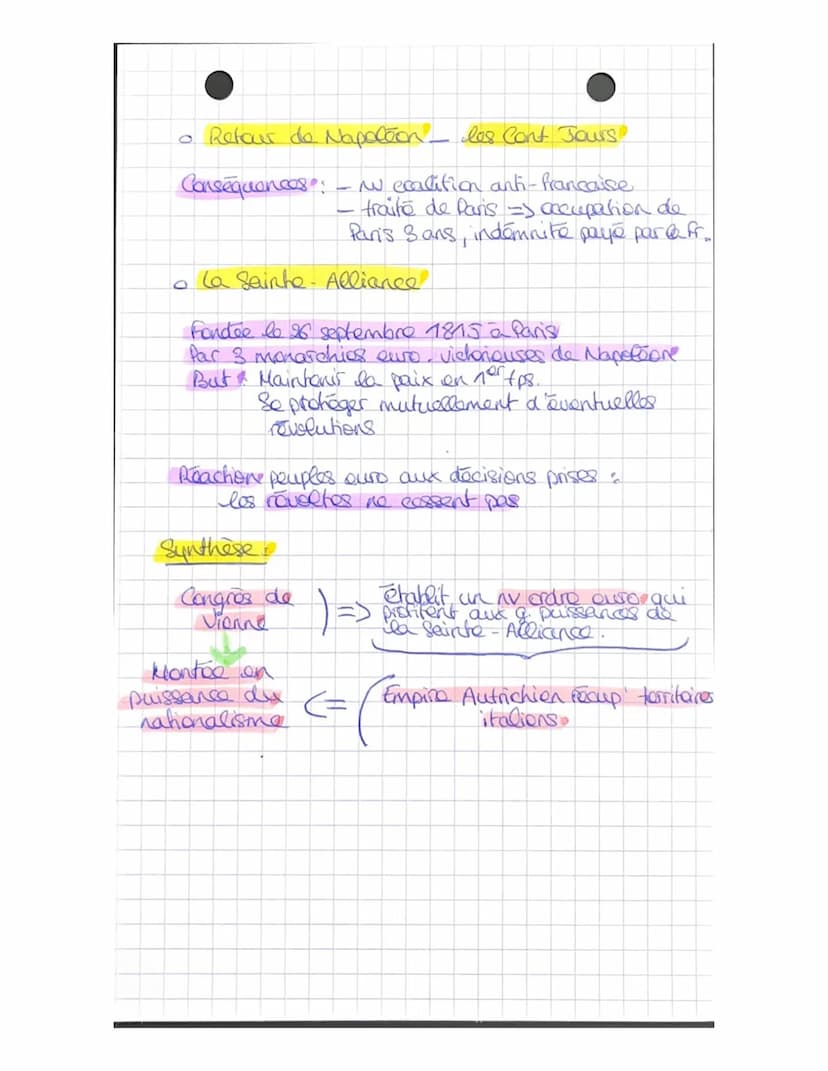 o Retour de Napoléon - les Cent Jours
Conséquences : - nv coalition anti-française
- traité de Paris => occupation de
Paris 3 ans, indémnité payé par la fr.
o La Sainte-Alliance
Fondée le 26 septembre 1815 à Paris
Par 3 monarchies euro. victorieuses de Napoléon
But : Maintenir la paix en 1er tps.
Se protéger mutuellement d'éventuelles
révolutions
Réaction peuples euro aux décisions prises :
les révoltes ne cessent pas
Synthèse :
Congrès de
Vienne
) => établit un nv ordre euro qui
profitent aux g. puissances de
la Sainte-Alliance.
Montée en
puissance du
nationalisme
<= ( Empire Autrichien récup' territoires
italiens.